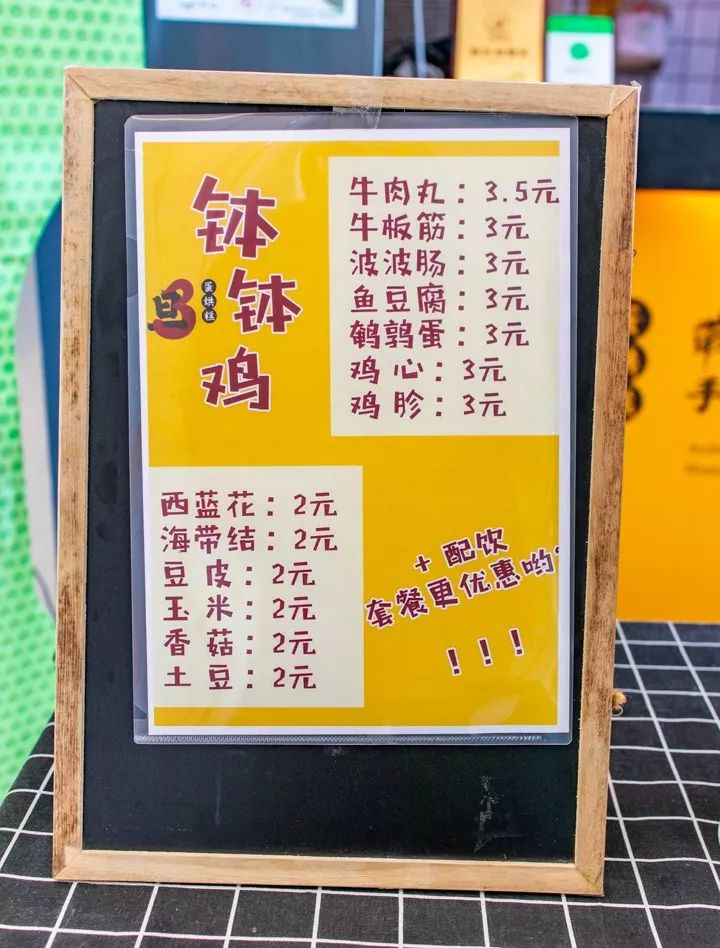 钵
钵
鸡
旦
蛋烘糕
牛肉丸：3.5元
牛板筋：3元
波波肠：3元
鱼豆腐：3元
鹌鹑蛋：3元
鸡心：3元
鸡胗：3元
西蓝花：2元
海带结：2元
豆皮：2元
玉米：2元
香菇：2元
土豆：2元
+ 配饮
套餐更优惠哟~
！！！